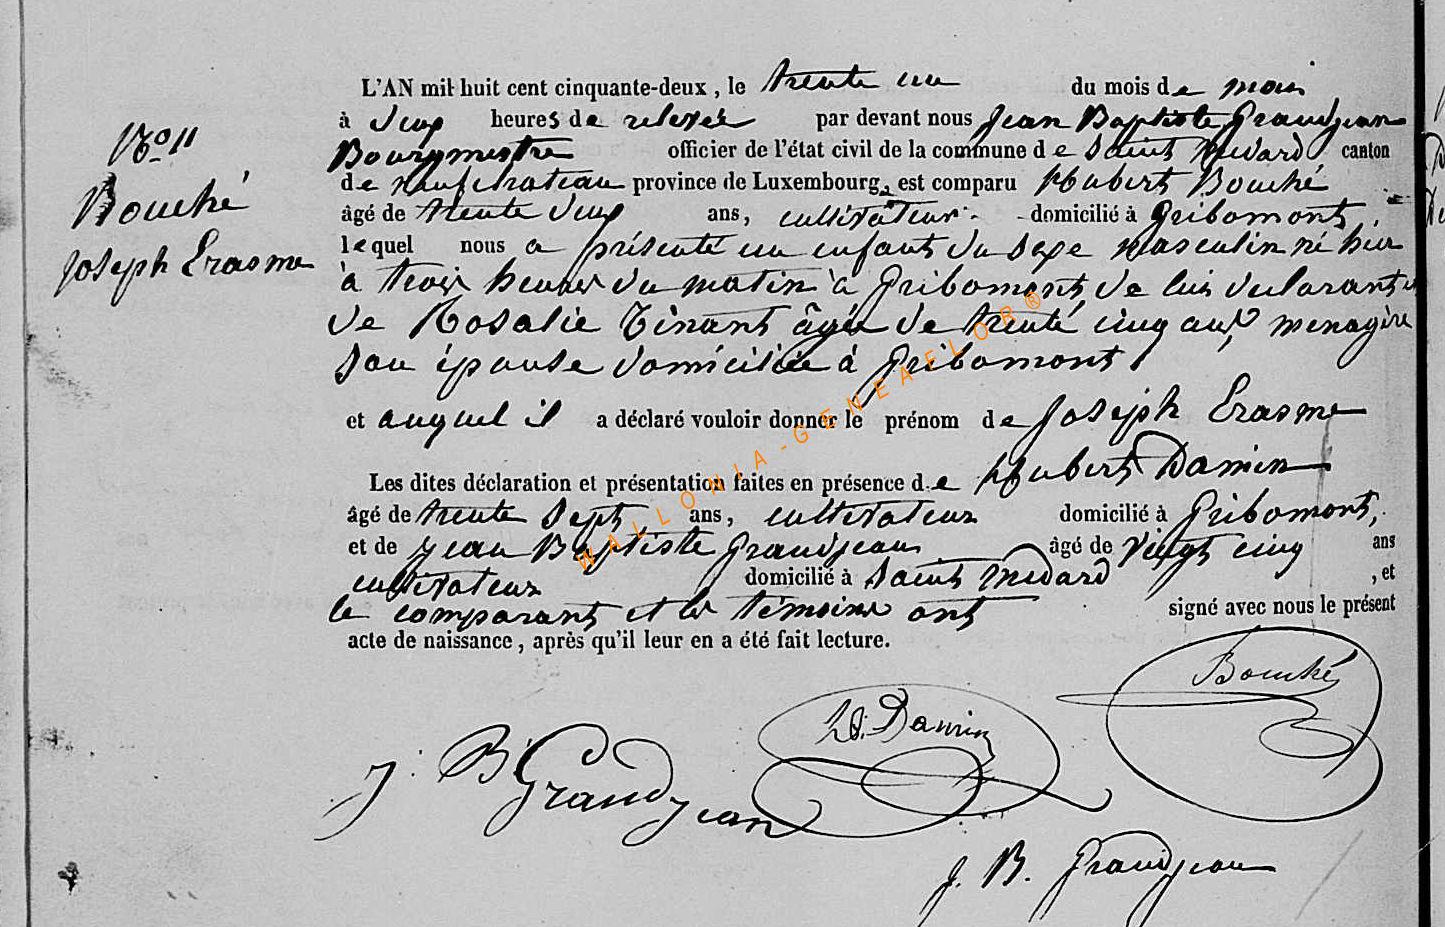 N° 11
Bouché
Joseph Erasme
L'AN mil huit cent cinquante-deux, le trente un du mois de mai
à deux heures de relevée par devant nous Jean Baptiste Grandjean
Bourgmestre officier de l'état civil de la commune de Saint Médard canton
de neufchateau province de Luxembourg, est comparu Hubert Bouché
âgé de trente deux ans, cultivateur domicilié à Gribomont,
lequel nous a présenté un enfant du sexe masculin né hier
à trois heures du matin à Gribomont, de lui déclarant et
de Rosalie Tinant âgée de trente cinq ans, menagère
son épouse domiciliée à Gribomont
et auquel il a déclaré vouloir donner le prénom de Joseph Erasme
Les dites déclaration et présentation faites en présence de Hubert Damien
âgé de trente sept ans, cultivateur domicilié à Gribomont,
et de Jean Baptiste Grandjean âgé de vingt cinq ans
cultivateur domicilié à Saint Médard, et
le comparant et les témoins ont signé avec nous le présent
acte de naissance, après qu'il leur en a été fait lecture.
Bouché
H. Damien
J. B. Grandjean
J. B. Grandjean
WALLONIA-GENEAFLOB®